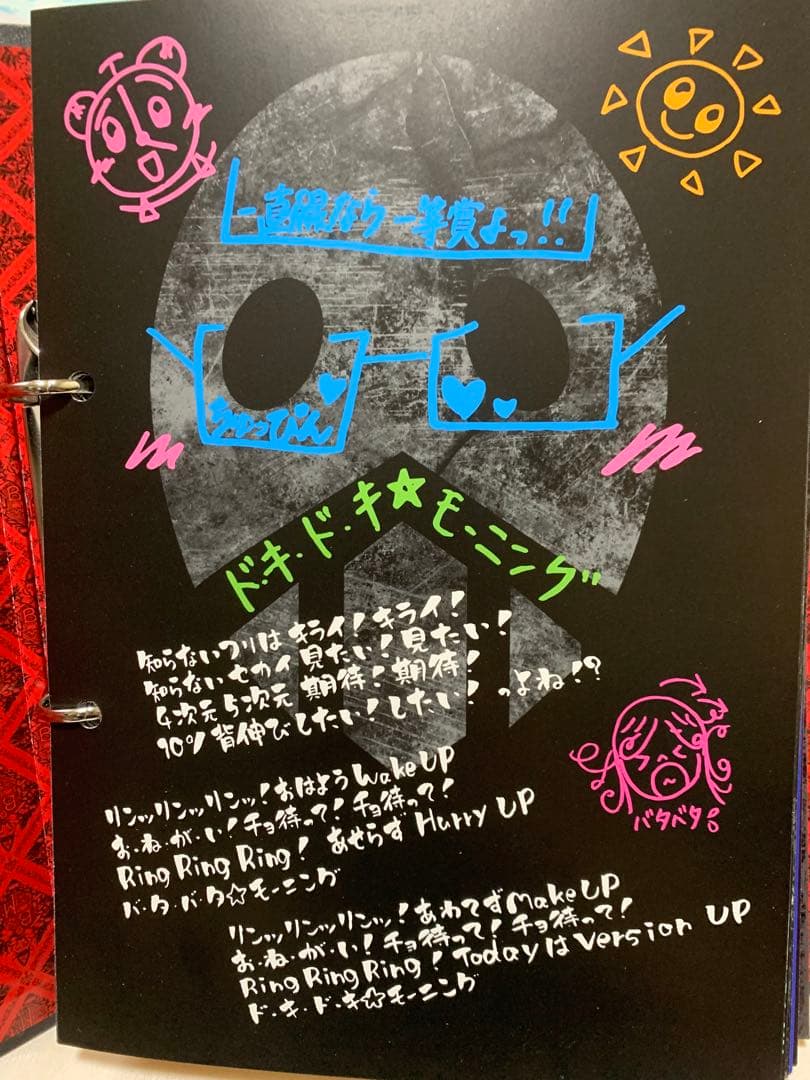 一直線なら一等賞よっ!!
ちゅっぴん
ド・キ・ド・キ☆モーニング
知らないフリは キライ! キライ!
知らない セカイ 見たい! 見たい!
4次元 5次元 期待! 期待!
90% 背伸びしたい! したい! っよね!?
リンッリンッリンッ! おはよう Wake UP
お・ね・が・い! チョ待って! チョ待って!
Ring Ring Ring! あせらず Hurry UP
バ・タ・バ・タ☆モーニング
バタバタ
リンッリンッリンッ! あわてず Make UP
お・ね・が・い! チョ待って! チョ待って!
Ring Ring Ring! Todayは Version UP
ド・キ・ド・キ☆モーニング